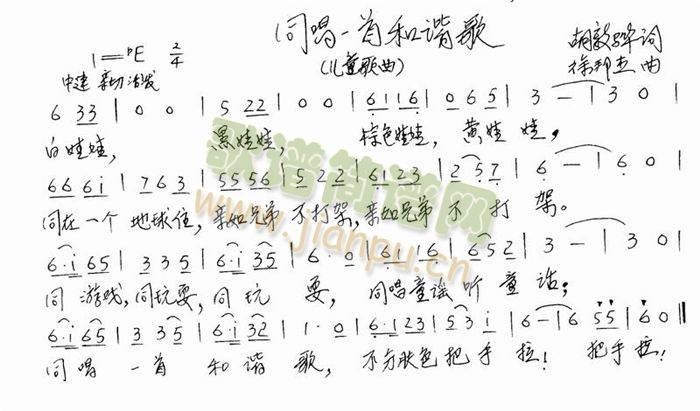 同唱一首和谐歌
(儿童歌曲)
1=♭E 2/4
胡敦骅词
徐邦杰曲
中速 亲切活泼
6 33 | 0 0 | 5 22 | 0 0 | 6116 | 0 6 5 | 3 — | 3 0 |
白娃娃, 黑娃娃, 棕色娃娃, 黄娃娃,
6 6 6 i | 7 6 3 | 5556 | 5 2 2 | 6123 | 2 5 7 | 6 — | 6 0 |
同在一个地球住,亲如兄弟不打架,亲如兄弟不打架。
6·i 65 | 3 3 5 | 6·i 35 | 6· 0 | 61 16 | 6 5 2 | 3 — | 3 0 |
同游戏,同玩耍,同玩耍,同唱童谣听童话;
6·i 65 | 3 3 5 | 6·i 32 | 1· 0 | 6·123 | 5 3 i | 6 — | 6 55 | 6 0 ‖
同唱一首和谐歌,不分肤色把手拉!把手拉!
歌谱简谱网
www.jianpu.cn